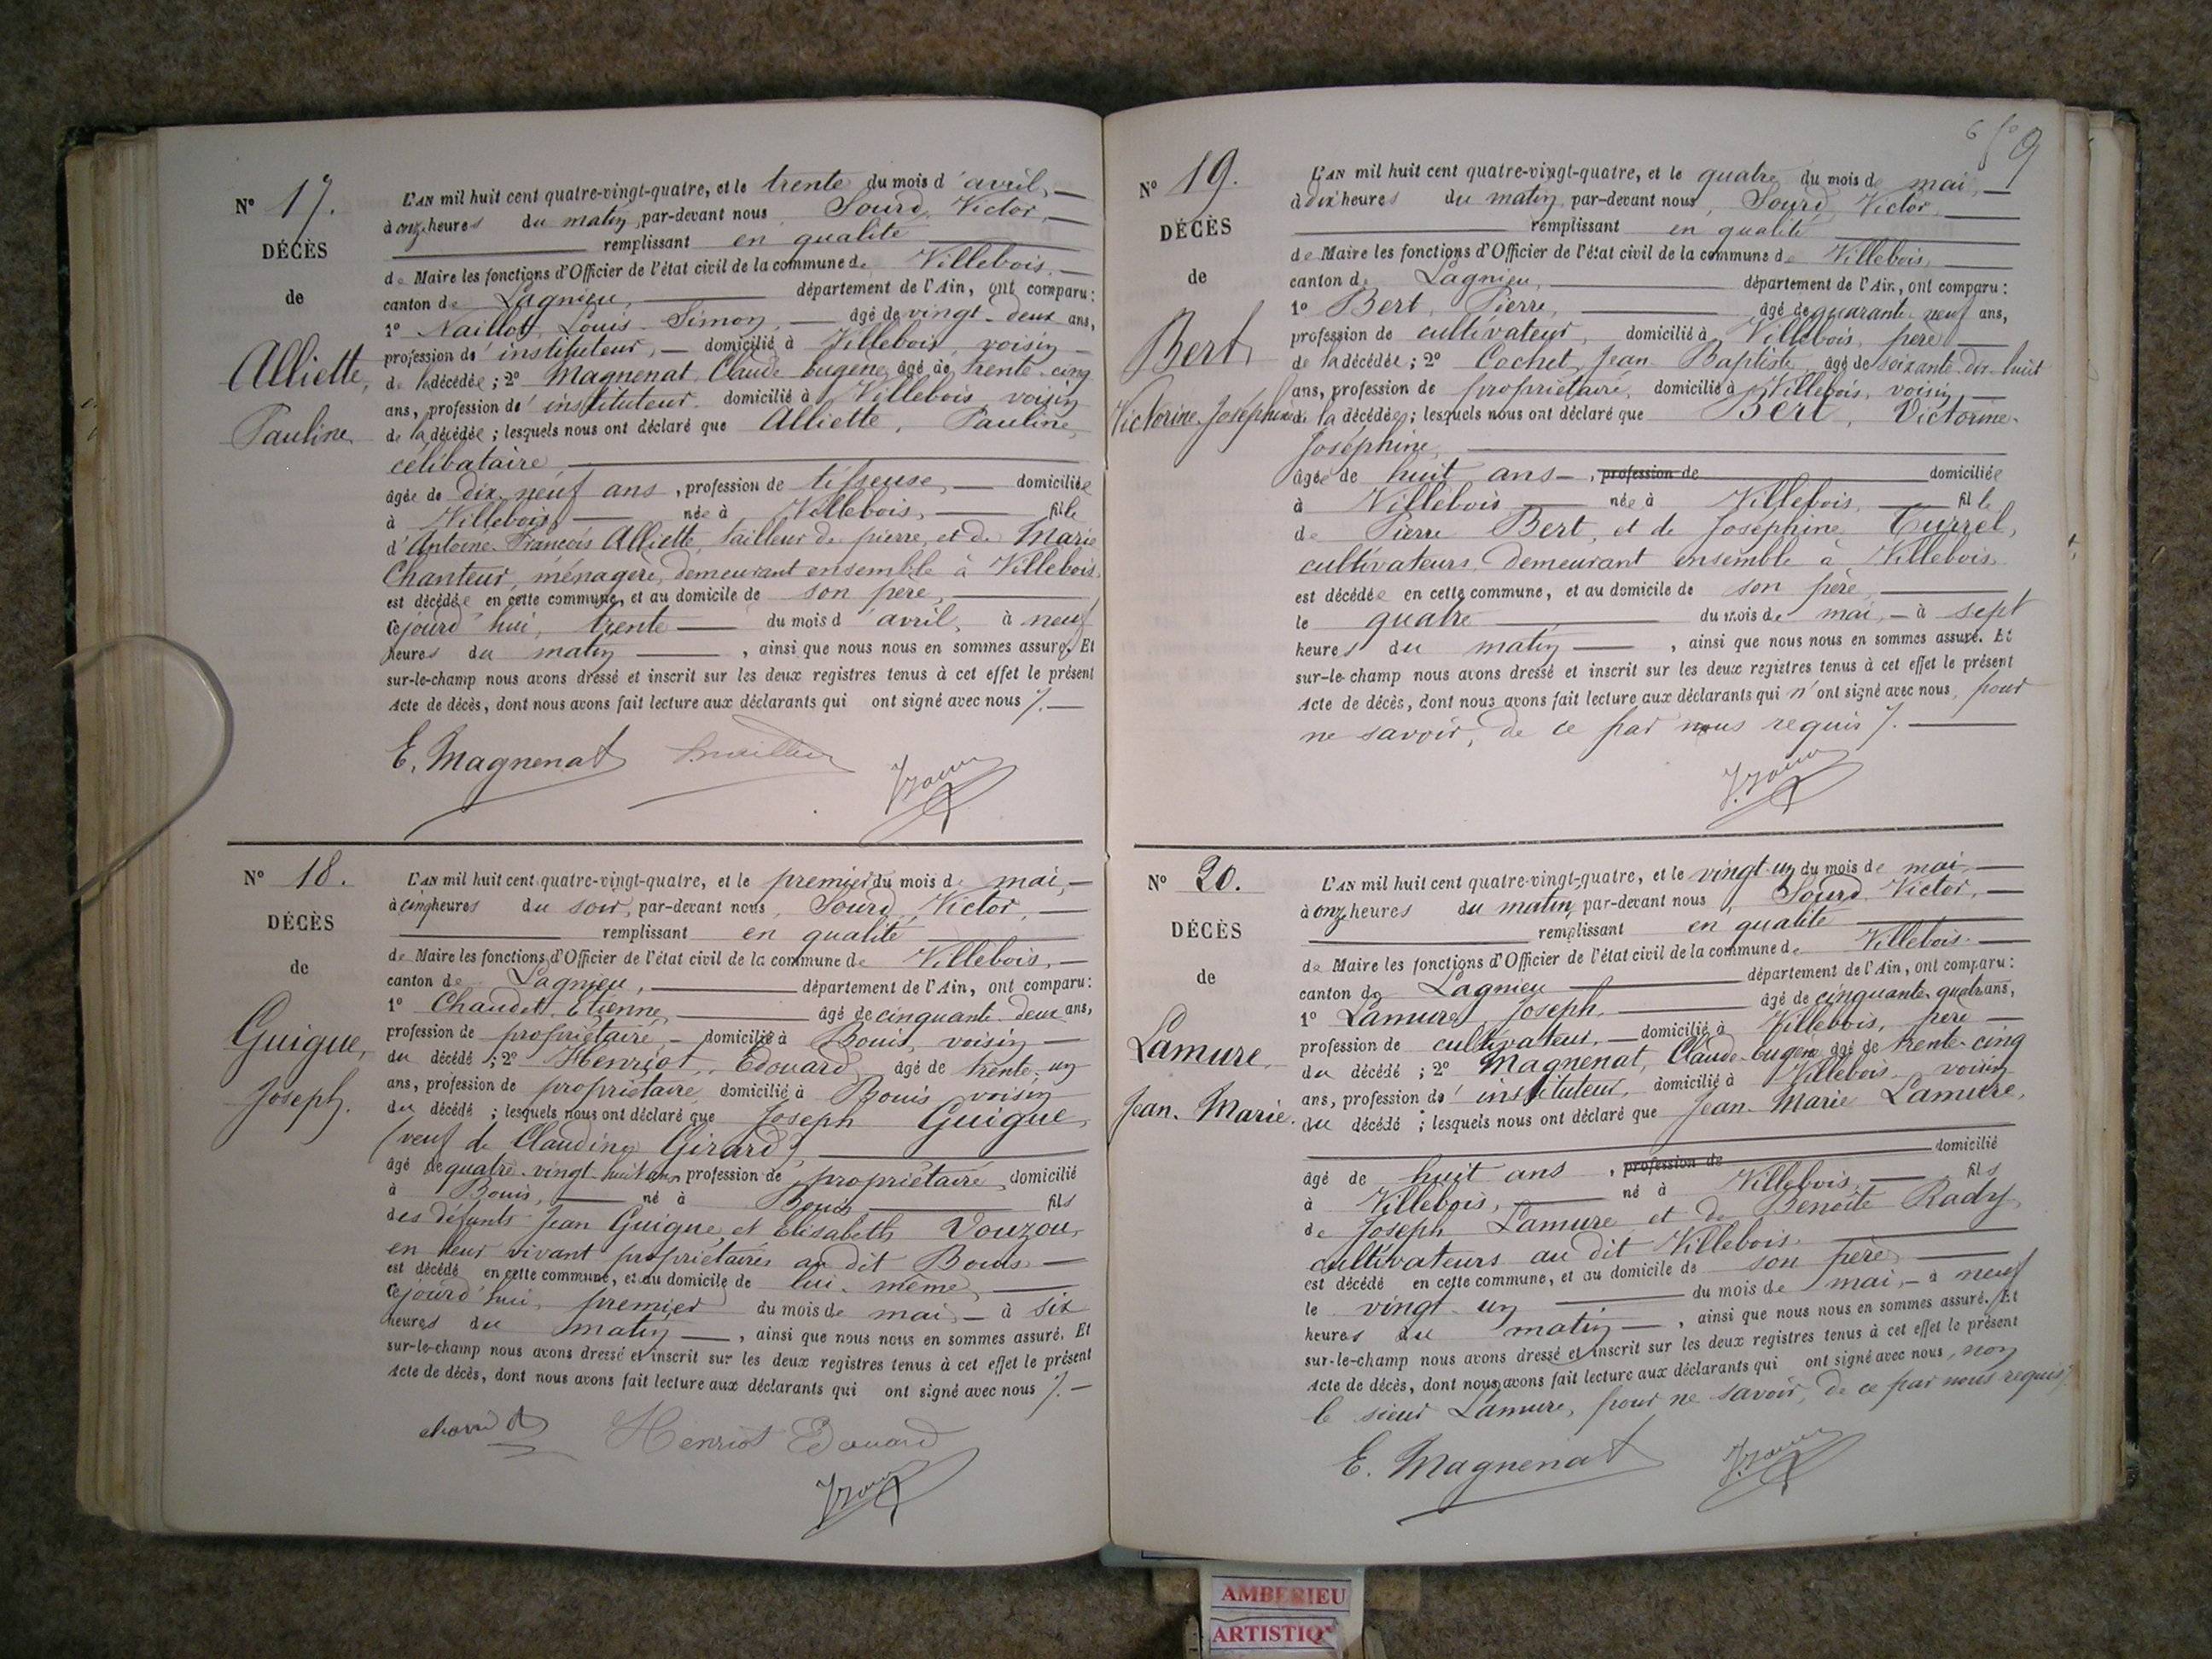 N° 17.
DÉCÈS
de
Alliette,
Pauline
L'AN mil huit cent quatre-vingt-quatre, et le trente du mois d'avril, —
à onze heures du matin, par-devant nous, Sourd, Victor, —
remplissant en qualité
de Maire les fonctions d'Officier de l'état civil de la commune de Villebois, —
canton de Lagnieu, — département de l'Ain, ont comparu:
1° Naillot, Louis-Simon, — âgé de vingt-deux ans,
profession d'instituteur, — domicilié à Villebois, voisin —
de la décédée; 2° Magnenat, Claude Eugène, âgé de trente-cinq
ans, profession d'instituteur, domicilié à Villebois, voisin
de la décédée; lesquels nous ont déclaré que Alliette, Pauline,
célibataire —
âgée de dix-neuf ans, profession de tisseuse, — domiciliée
à Villebois, — née à Villebois, — fille
d'Antoine-François Alliette, tailleur de pierre, et de Marie
Chanteur, ménagère, demeurant ensemble à Villebois,
est décédée en cette commune, et au domicile de son père, —
cejourd'hui, trente — du mois d'avril, à neuf
heures du matin —, ainsi que nous nous en sommes assuré. Et
sur-le-champ nous avons dressé et inscrit sur les deux registres tenus à cet effet le présent
Acte de décès, dont nous avons fait lecture aux déclarants qui ont signé avec nous ⁒. —
E. Magnenat
N° 18.
DÉCÈS
de
Guigue,
Joseph.
L'AN mil huit cent quatre-vingt-quatre, et le premier du mois de mai, —
à cinq heures du soir, par-devant nous, Sourd, Victor, —
remplissant en qualité
de Maire les fonctions d'Officier de l'état civil de la commune de Villebois, —
canton de Lagnieu, — département de l'Ain, ont comparu:
1° Chaudet, Etienne, — âgé de cinquante-deux ans,
profession de propriétaire, — domicilié à Bouis, voisin —
du décédé; 2° Henriot, Edouard, âgé de trente-un
ans, profession de propriétaire, domicilié à Bouis, voisin
du décédé; lesquels nous ont déclaré que Joseph Guigue,
(veuf de Claudine Girard), —
âgé de quatre-vingt-huit ans, profession de propriétaire, domicilié
à Bouis, — né à Bouis — fils
des défunts Jean Guigue, et Elisabeth Vouzou,
en leur vivant propriétaires au dit Bouis —
est décédé en cette commune, et au domicile de lui-même, —
cejourd'hui, premier du mois de mai, — à six
heures du matin —, ainsi que nous nous en sommes assuré. Et
sur-le-champ nous avons dressé et inscrit sur les deux registres tenus à cet effet le présent
Acte de décès, dont nous avons fait lecture aux déclarants qui ont signé avec nous ⁒. —
Henriot Edouard
9
N° 19.
DÉCÈS
de
Bert,
Victorine-Joséphine
L'AN mil huit cent quatre-vingt-quatre, et le quatre du mois de mai, —
à dix heures du matin, par-devant nous, Sourd, Victor, —
remplissant en qualité
de Maire les fonctions d'Officier de l'état civil de la commune de Villebois, —
canton de Lagnieu, — département de l'Ain, ont comparu:
1° Bert, Pierre, — âgé de quarante-neuf ans,
profession de cultivateur, domicilié à Villebois, père —
de la décédée; 2° Cochet, Jean-Baptiste, âgé de soixante-dix-huit
ans, profession de propriétaire, domicilié à Villebois, voisin —
de la décédée; lesquels nous ont déclaré que Bert, Victorine-
Joséphine, —
âgée de huit ans —, profession de — domiciliée
à Villebois — née à Villebois, — fille
de Pierre Bert, et de Joséphine Turrel,
cultivateurs, demeurant ensemble à Villebois,
est décédée en cette commune, et au domicile de son père, —
le quatre — du mois de mai, — à sept
heures du matin —, ainsi que nous nous en sommes assuré. Et
sur-le-champ nous avons dressé et inscrit sur les deux registres tenus à cet effet le présent
Acte de décès, dont nous avons fait lecture aux déclarants qui n'ont signé avec nous, pour
ne savoir, de ce par nous requis ⁒. —
N° 20.
DÉCÈS
de
Lamure,
Jean-Marie.
L'AN mil huit cent quatre-vingt-quatre, et le vingt-un du mois de mai, —
à onze heures du matin, par-devant nous, Sourd, Victor, —
remplissant en qualité
de Maire les fonctions d'Officier de l'état civil de la commune de Villebois. —
canton de Lagnieu — département de l'Ain, ont comparu:
1° Lamure, Joseph, — âgé de cinquante-quatre ans,
profession de cultivateur, — domicilié à Villebois, père —
du décédé; 2° Magnenat, Claude-Eugène, âgé de trente-cinq
ans, profession d'instituteur, domicilié à Villebois, voisin
du décédé; lesquels nous ont déclaré que Jean-Marie Lamure,
âgé de huit ans, profession de — domicilié
à Villebois, — né à Villebois, — fils
de Joseph Lamure et de Benoîte Rady,
cultivateurs au dit Villebois. —
est décédé en cette commune, et au domicile de son père, —
le vingt-un — du mois de mai, — à neuf
heures du matin —, ainsi que nous nous en sommes assuré. Et
sur-le-champ nous avons dressé et inscrit sur les deux registres tenus à cet effet le présent
Acte de décès, dont nous avons fait lecture aux déclarants qui ont signé avec nous, non
le sieur Lamure, pour ne savoir, de ce par nous requis ⁒.
E. Magnenat
AMBERIEU
ARTISTIQ